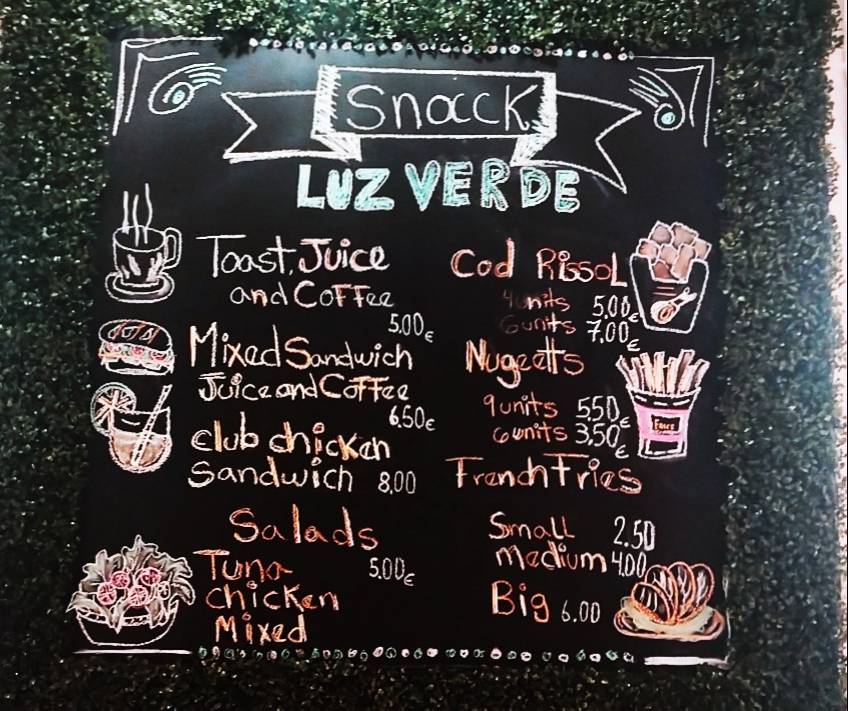 Snack
LUZ VERDE
Toast, Juice
and Coffee
5.00€
Mixed Sandwich
Juice and Coffee
6.50€
club chicken
Sandwich 8,00
Salads
Tuna 5.00€
chicken
Mixed
Cod Rissol
4 units 5.00€
6 units 7.00€
Nugeetts
9 units 5,50€
6 units 3,50€
French Fries
Small 2.50
medium 4.00
Big 6.00